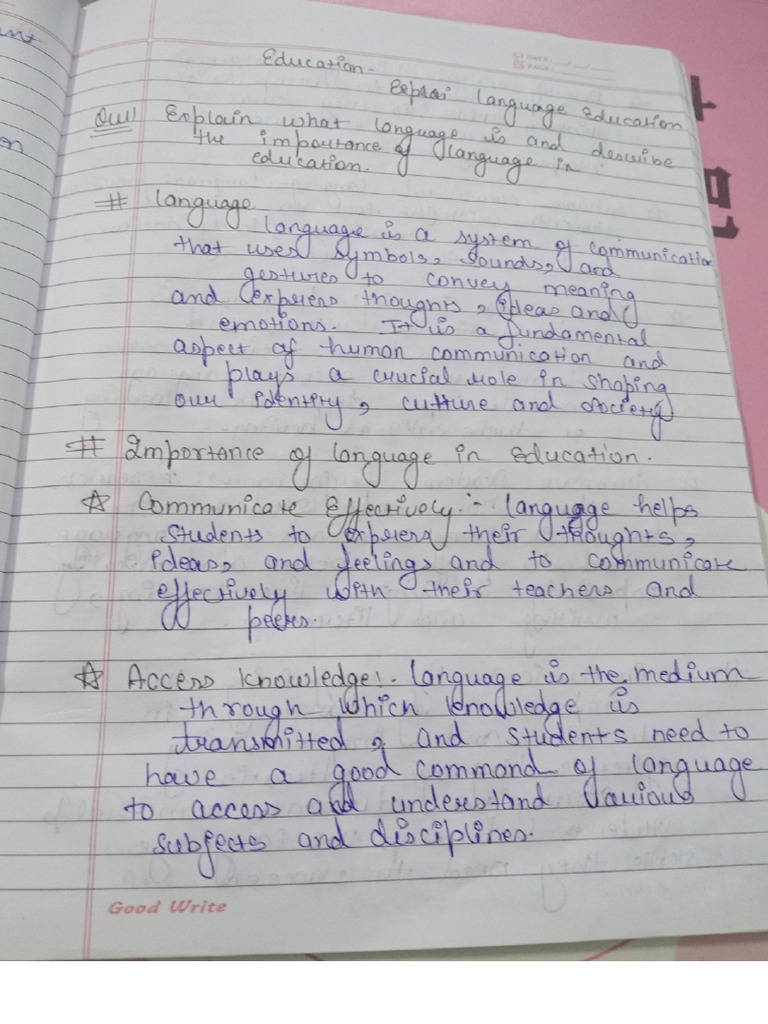 Education -
Explai language education
Qu1) Explain what language is and describe
the importance of language in
education.
# language
language is a system of communication
that uses symbols, sounds, and
gestures to convey meaning
and express thoughts, ideas and
emotions. It is a fundamental
aspect of human communication and
plays a crucial role in shaping
our identity, culture and society
# Importance of language in education.
☆ Communicate Effectively:- language helps
students to express their thoughts,
ideas, and feelings and to communicate
effectively with their teachers and
peers.
☆ Access knowledge:- language is the medium
through which knowledge is
transmitted, and students need to
have a good command of language
to access and understand various
subjects and disciplines.
Good Write